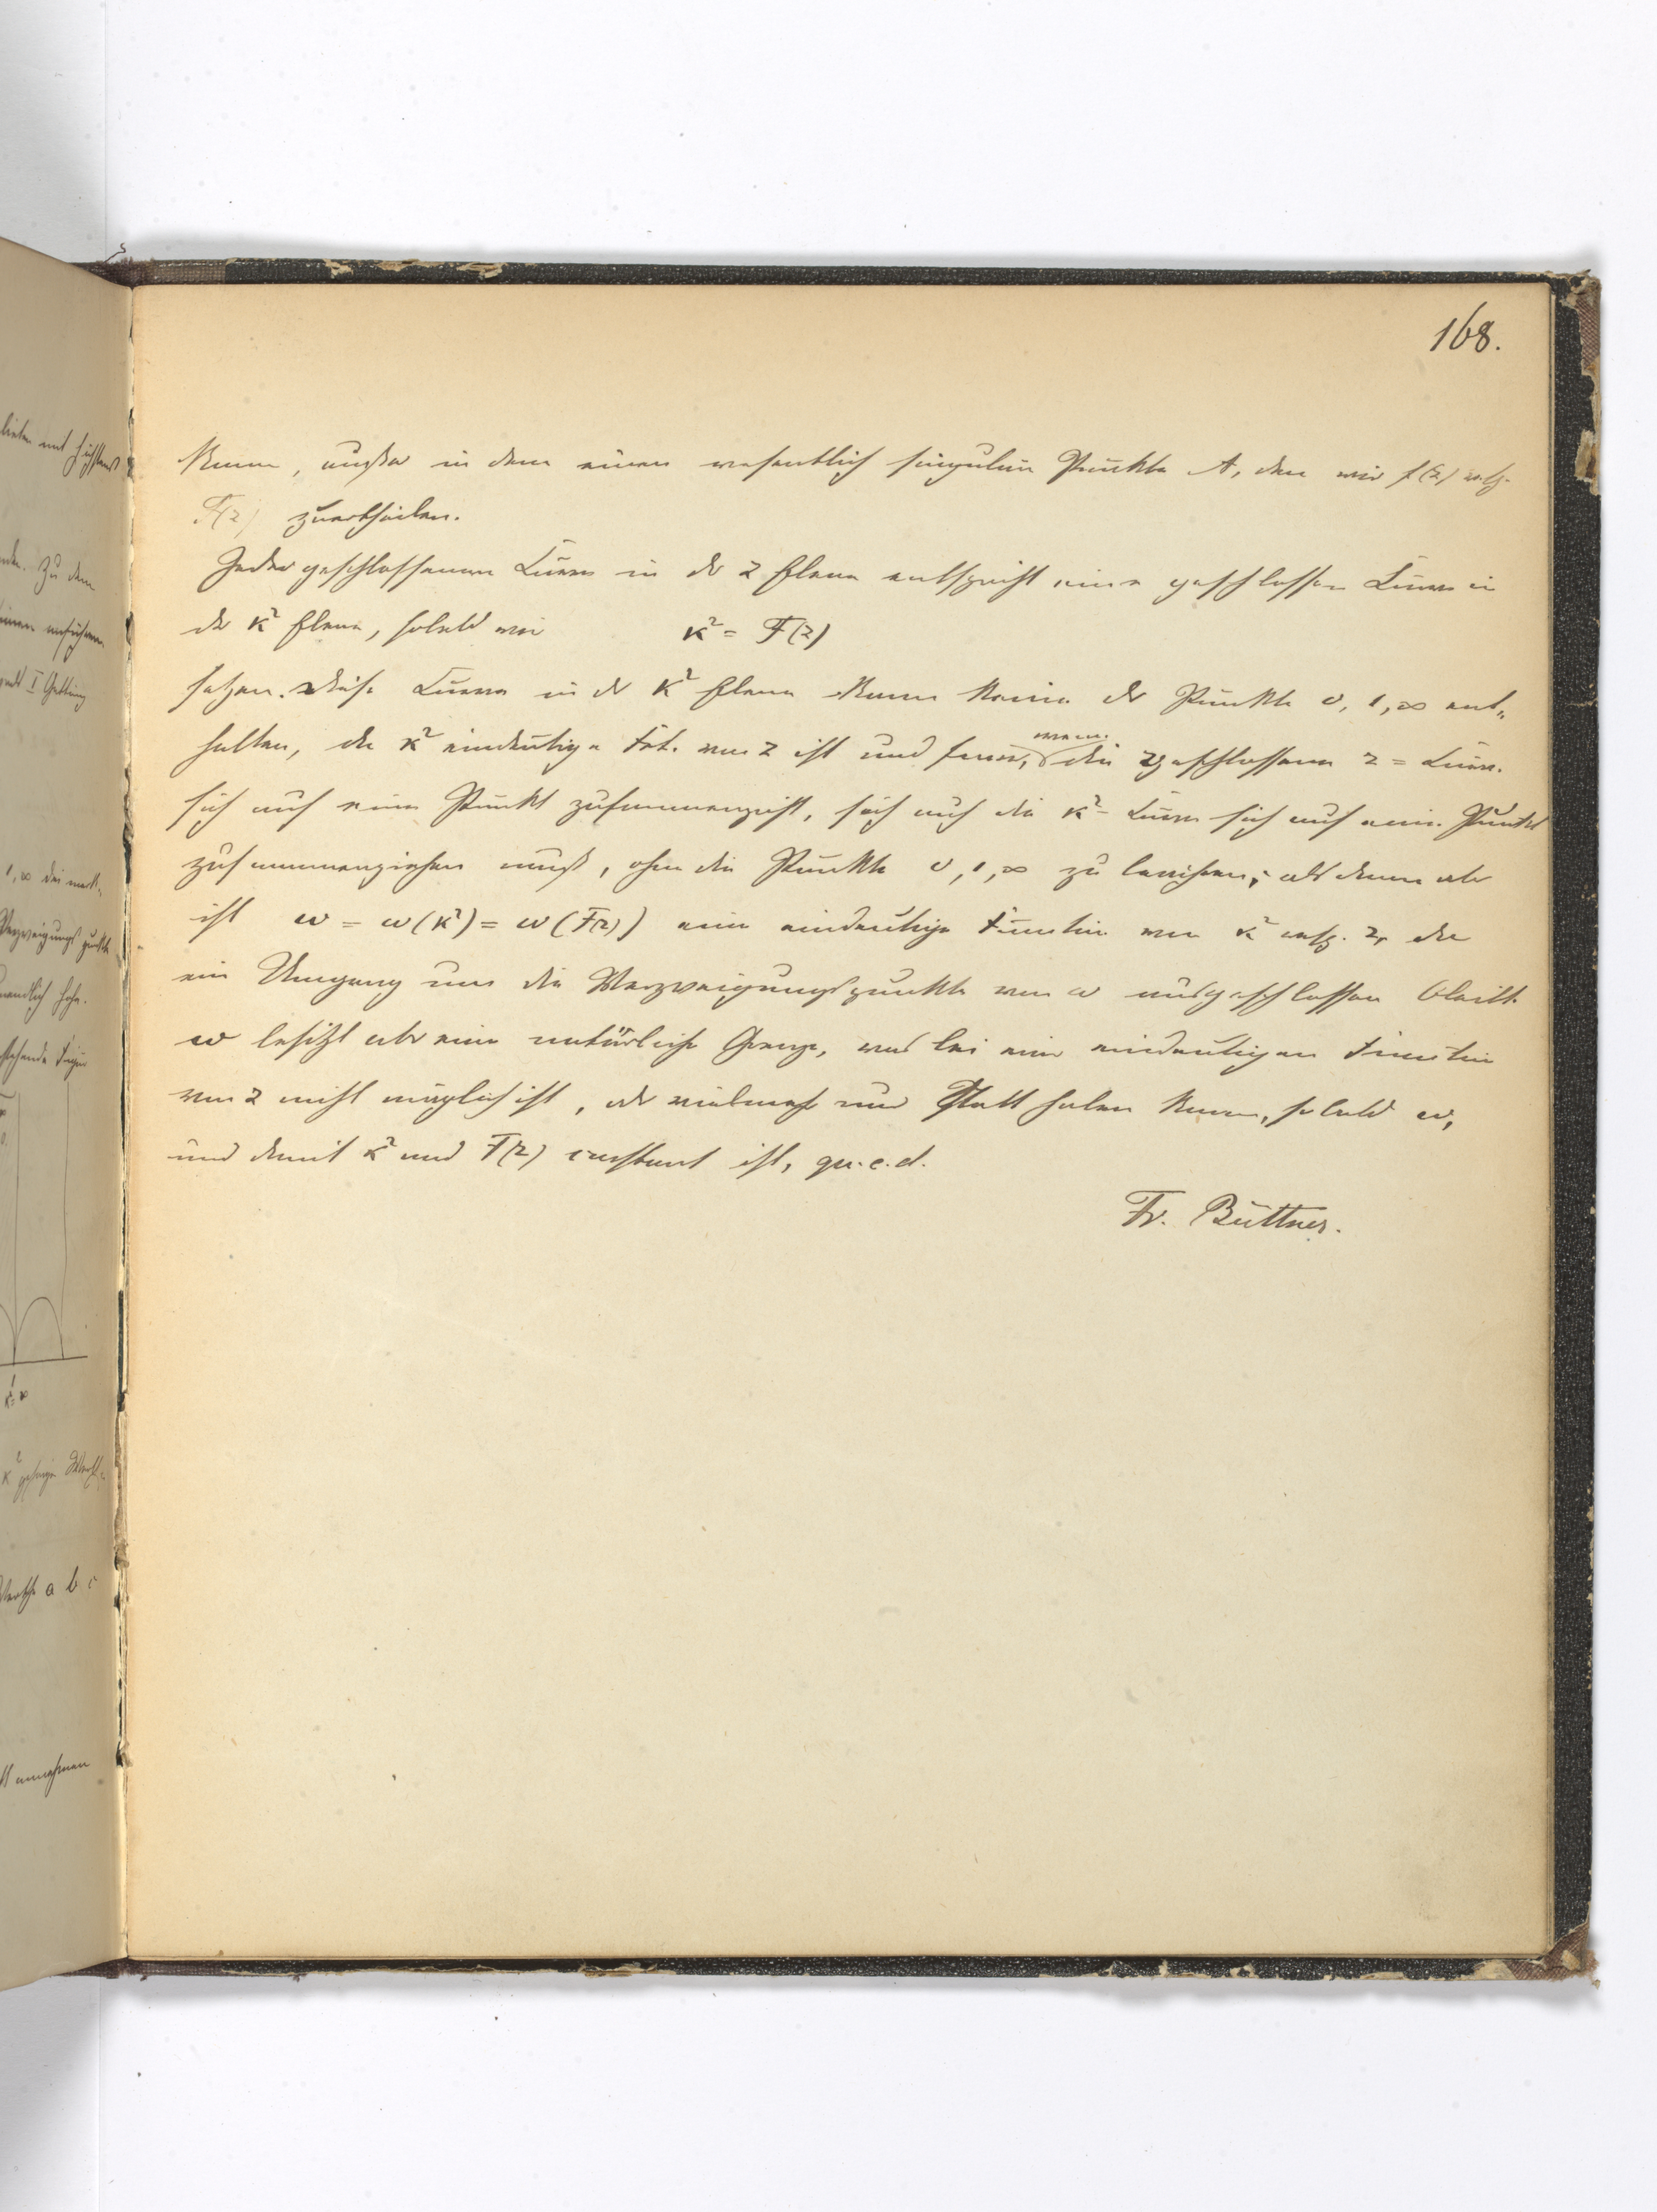 168.
kann, außer in dem einen wesentlich singulären Punkte A, den wir f(z) resp.
F(z) zuertheilen.
Jeder geschlossenen Curve in der z Ebene entspricht eine geschlossene Curve in
der κ² Ebene, sobald wir κ² = F(z)
setzen. Diese Curve in der κ² Ebene kann keine der Punkte 0, 1, ∞ ent-
halten, da κ² eindeutige Fct. von z ist und ferner,
wenn
die geschlossene z = Curve
sich auf einen Punkt zusammenzieht, sich auch die κ² = Curve sich auf einen Punkt
zusammenziehen muß, ohne die Punkte 0, 1, ∞ zu berühren; alsdann aber
ist ω = ω(κ²) = ω(F(z)) eine eindeutige Function von κ² resp. z, da
ein Umgang um die Verzweigungspunkte von ω ausgeschlossen bleibt.
ω besitzt aber eine natürliche Grenze, was bei einer eindeutigen Function
von z nicht möglich ist, oder vielmehr nur Statt haben kann, sobald ω,
und damit κ² und F(z) constant ist, qu. e. d.
Fr. Büttner.